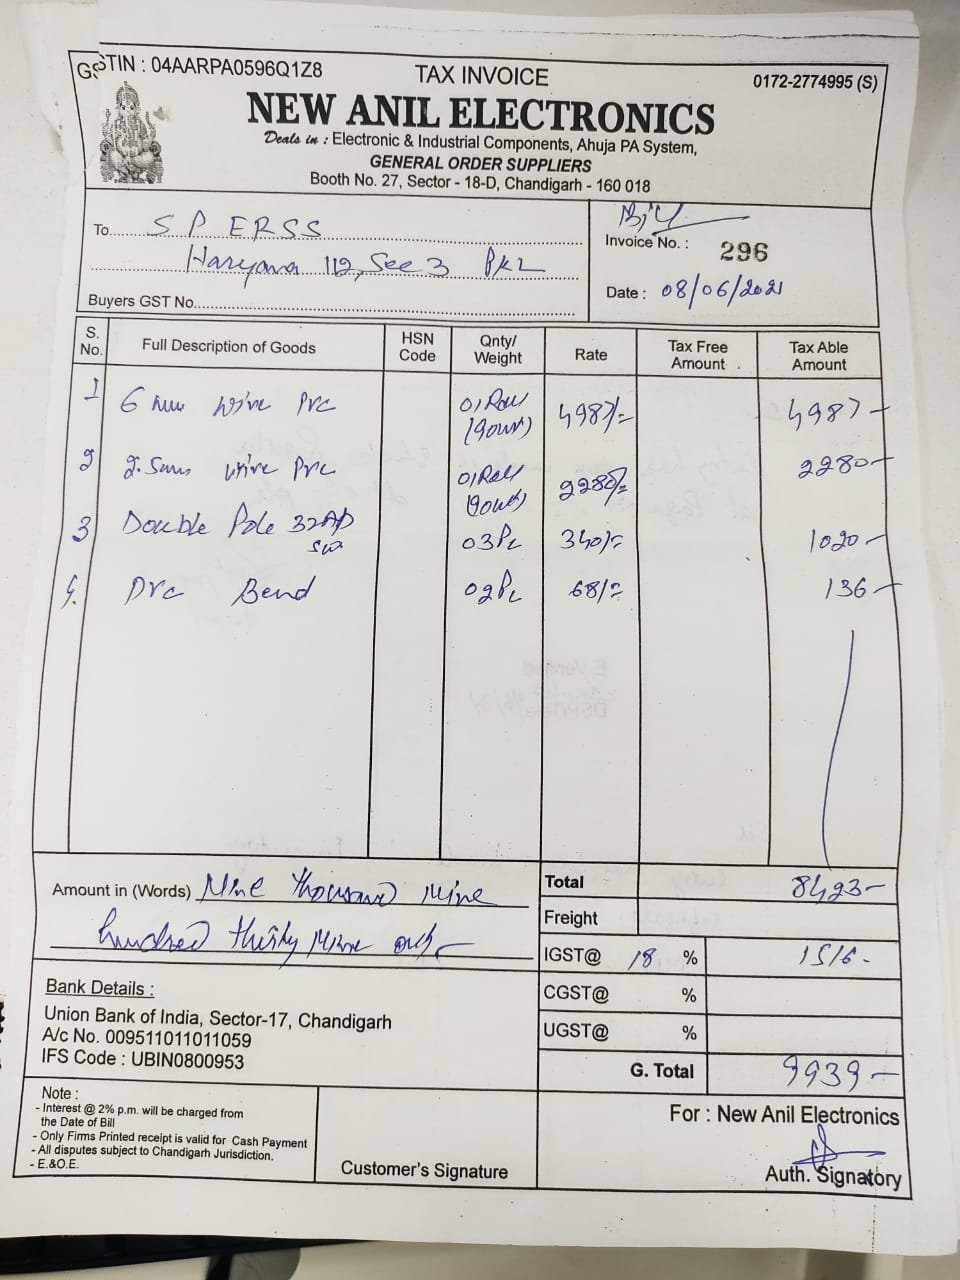 GSTIN : 04AARPA0596Q1Z8
TAX INVOICE
0172-2774995 (S)
NEW ANIL ELECTRONICS
Deals in : Electronic & Industrial Components, Ahuja PA System,
GENERAL ORDER SUPPLIERS
Booth No. 27, Sector - 18-D, Chandigarh - 160 018
To S P ERSS
Haryana 112, Sec 3 PKL
Buyers GST No.
Bill
Invoice No. : 296
Date : 08/06/2021
S. No. Full Description of Goods HSN Code Qnty/ Weight Rate Tax Free Amount Tax Able Amount
1 6 mm wire PVC 01 Roll (90mtr) 4987/= 4987-
2 2.5mm wire PVC 01 Roll (90mtr) 2280/= 2280-
3 Double Pole 32A 03 Pc 340/= 1020-
4. PVC Bend 02 Pc 68/= 136-
Amount in (Words) Nine thousand Nine
hundred thirty Nine only
Total 8423-
Freight
IGST@ 18 % 1516-
CGST@ %
UGST@ %
G. Total 9939-
Bank Details :
Union Bank of India, Sector-17, Chandigarh
A/c No. 009511011011059
IFS Code : UBIN0800953
Note :
- Interest @ 2% p.m. will be charged from
the Date of Bill
- Only Firms Printed receipt is valid for Cash Payment
- All disputes subject to Chandigarh Jurisdiction.
- E.&O.E.
Customer's Signature
For : New Anil Electronics
Auth. Signatory